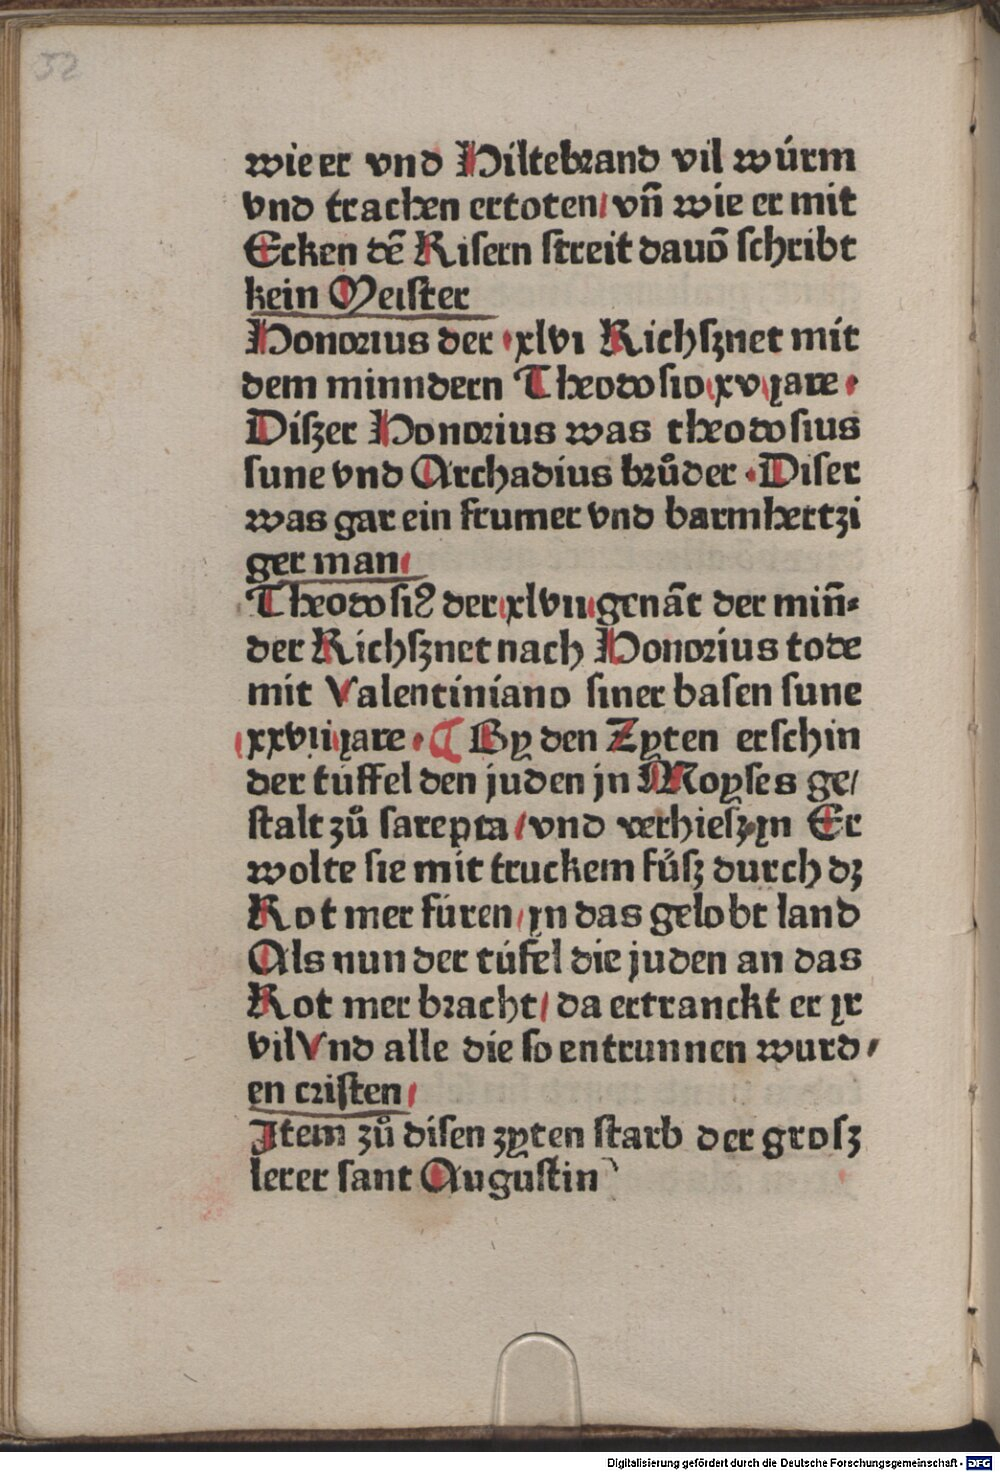 52
wie er vnd Hiltebrand vil würm
vnd trachen ertoten/ vn̄ wie er mit
Ecken dē Risern streit dauō schribt
kein Meister
Honorius der ·xlvi Richsznet mit
dem minndern Theodosio xv jare·
Diszer Honorius was theodosius
sune vnd Archadius brůder · Diser
was gar ein frumer vnd barmhertzi
ger man/
Theodosiꝰ der xlvii genāt der miñ⸗
der Richsznet nach Honorius tode
mit Valentiniano siner basen sune
xxvii jare · ¶ By den Zyten erschin
der tüffel den juden jn Moyses ge/
stalt zů sarepta/ vnd verhiesz jn Er
wolte sie mit truckem fůsz durch dz
Rot mer füren/ jn das gelobt land
Als nun der tüfel die juden an das
Rot mer bracht/ da ertranckt er jr
vil Vnd alle die so entrunnen wurd⸗
en cristen/
Item zů disen zyten starb der grosz
lerer sant Augustin
Digitalisierung gefördert durch die Deutsche Forschungsgemeinschaft - DFG